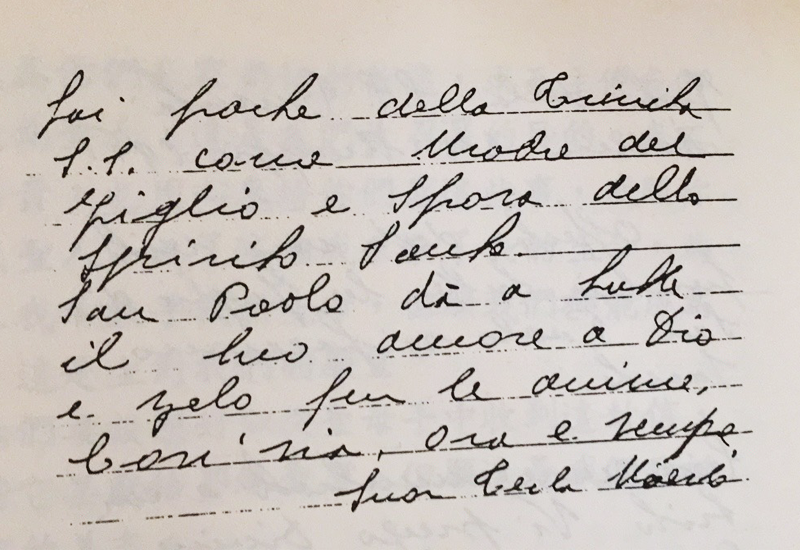 fai parte della Trinità
S.S. come Madre del
Figlio e Sposa dello
Spirito Santo.
San Paolo dà a tutte
il tuo amore a Dio
e zelo per le anime,
Così sia, ora e sempre
Suor Tecla